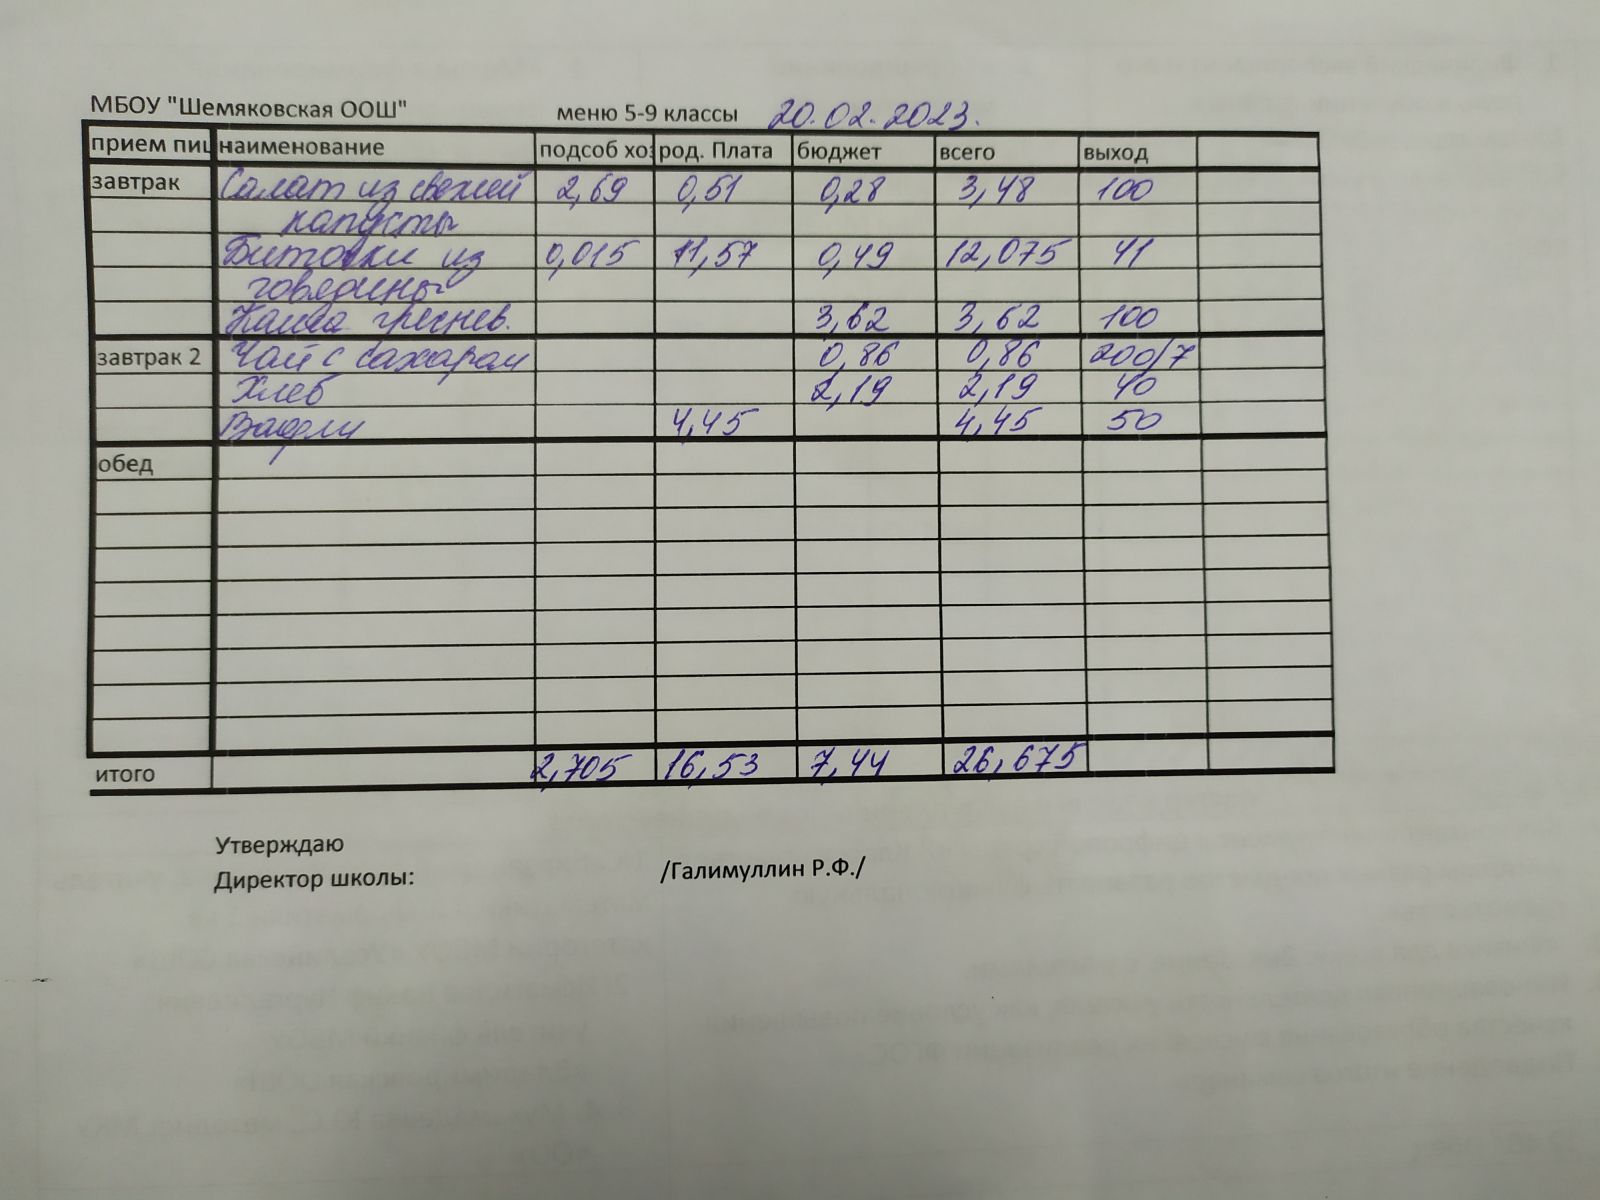 МБОУ "Шемяковская ООШ" меню 5-9 классы 20.02.2023.
прием пищ наименование подсоб хоз род. Плата бюджет всего выход
завтрак Салат из свежей 2,69 0,51 0,28 3,48 100
капусты
Биточки из 0,015 11,57 0,49 12,075 41
говядины
Каша гречнев. 3,62 3,62 100
завтрак 2 Чай с сахаром 0,86 0,86 200/7
Хлеб 2,19 2,19 40
Вафли 4,45 4,45 50
обед
итого 2,705 16,53 7,44 26,675
Утверждаю
Директор школы: /Галимуллин Р.Ф./